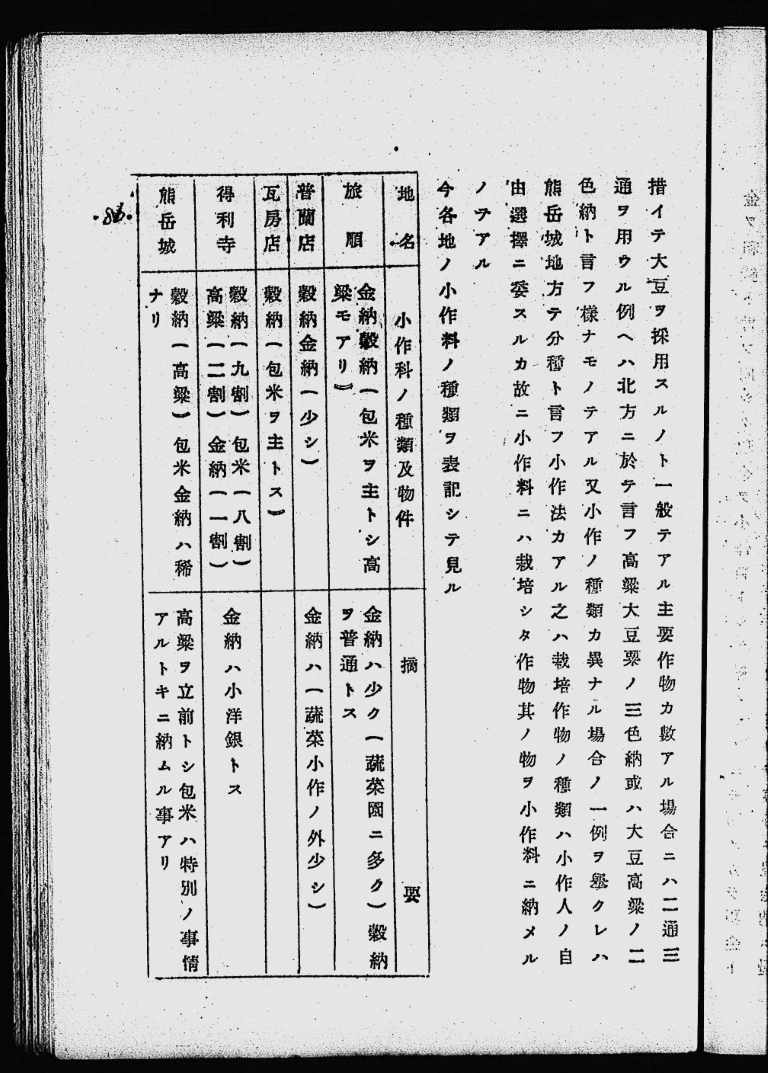 措イテ大豆ヲ採用スルノト一般テアル主要作物カ數アル場合ニハ二通三
通ヲ用ウル例ヘハ北方ニ於テ言フ高粱大豆粟ノ三色納或ハ大豆高粱ノ二
色納ト言フ樣ナモノテアル又小作ノ種類カ異ナル場合ノ一例ヲ擧クレハ
熊岳城地方テ分種ト言フ小作法カアル之ハ栽培作物ノ種類ハ小作人ノ自
由選擇ニ委スルカ故ニ小作料ニハ栽培シタ作物其ノ物ヲ小作料ニ納メル
ノテアル
今各地ノ小作料ノ種類ヲ表記シテ見ル
地名
小作科ノ種類及物件
摘要
旅順
金納穀納(包米ヲ主トシ高
粱モアリ)
金納ハ少ク(蔬菜園ニ多ク)穀納
ヲ普通トス
普蘭店
穀納金納(少シ)
金納ハ(蔬菜小作ノ外少シ)
瓦房店
穀納(包米ヲ主トス)
得利寺
穀納(九割)包米(八割)
高粱(二割)金納(一割)
金納ハ小洋銀トス
熊岳城
穀納(高粱)包米金納ハ稀
ナリ
高粱ヲ立前トシ包米ハ特別ノ事情
アルトキニ納ムル事アリ